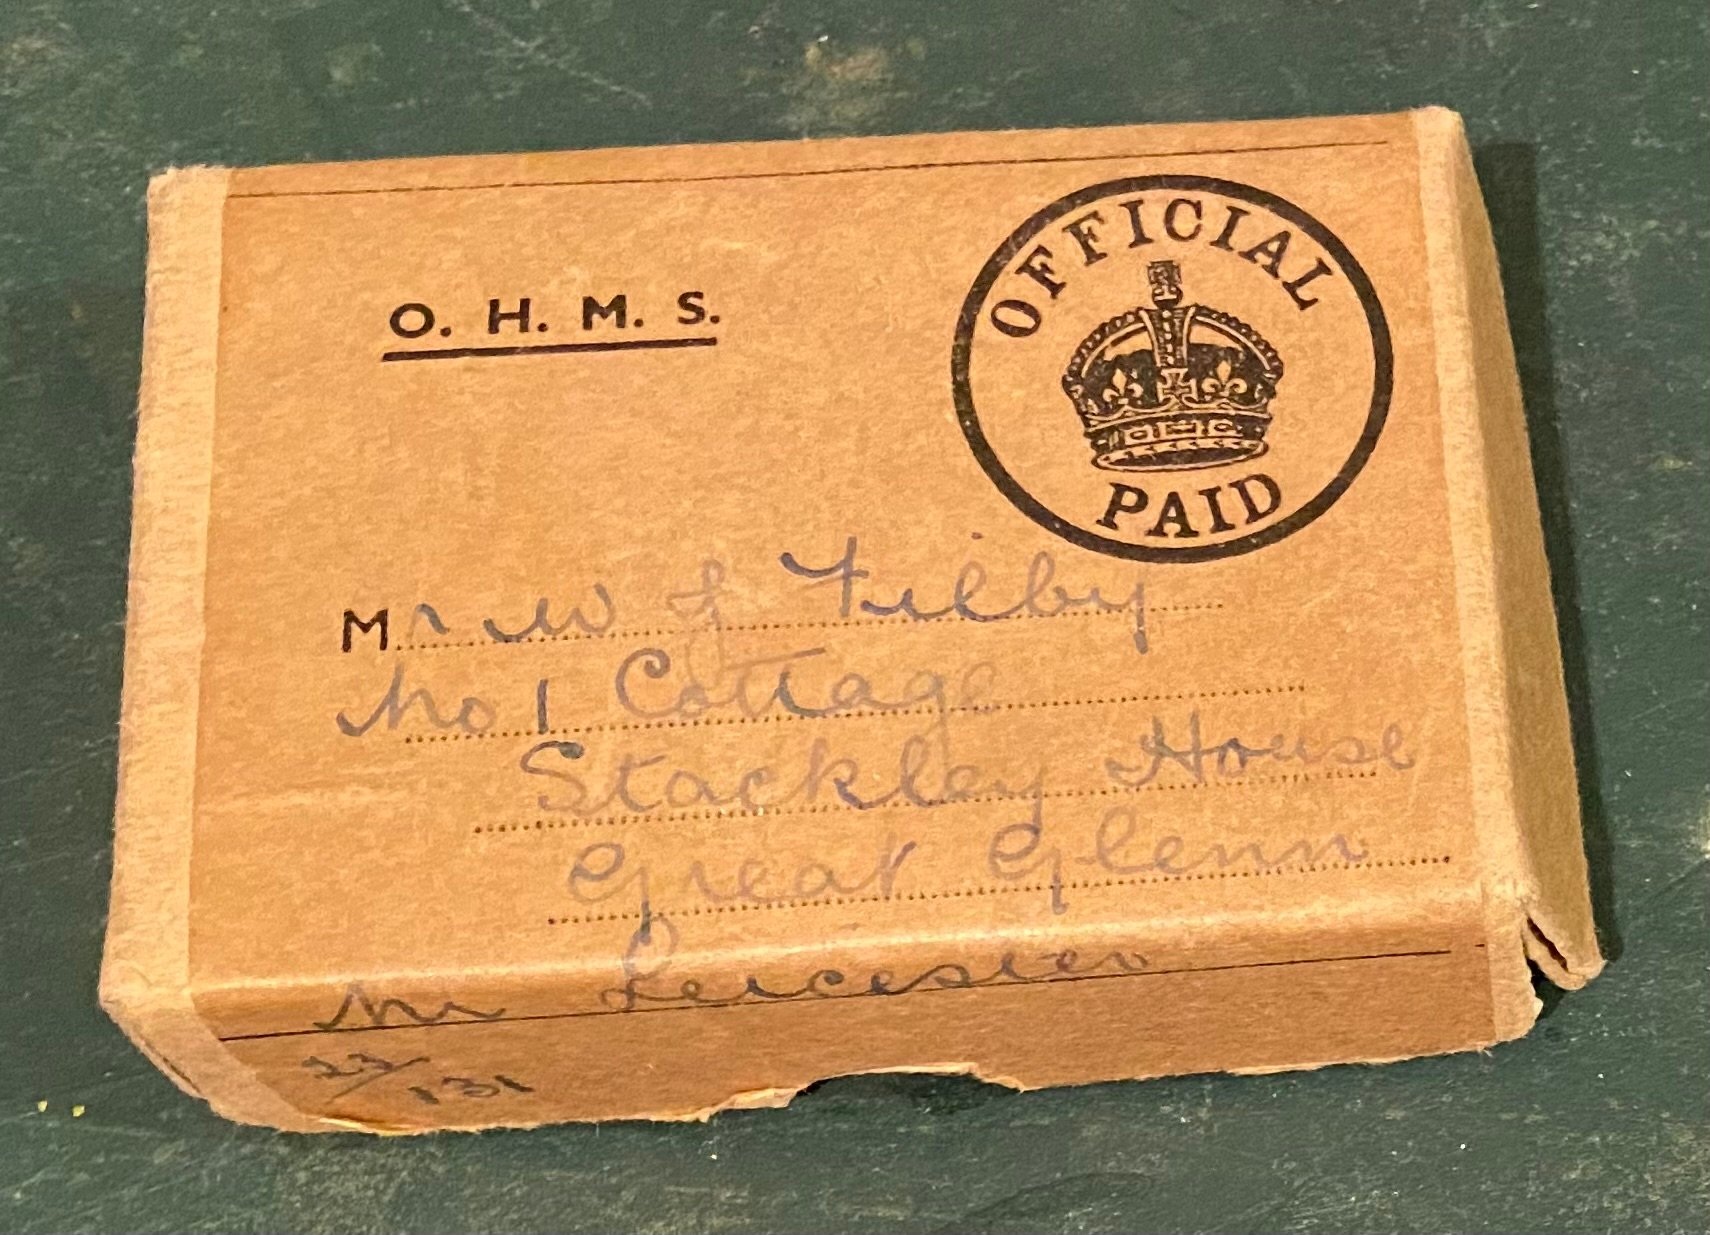 O. H. M. S.
OFFICIAL
PAID
Mr W J Filby
No 1 Cottage
Stackley House
Great Glenn
Nr Leicester
23/131